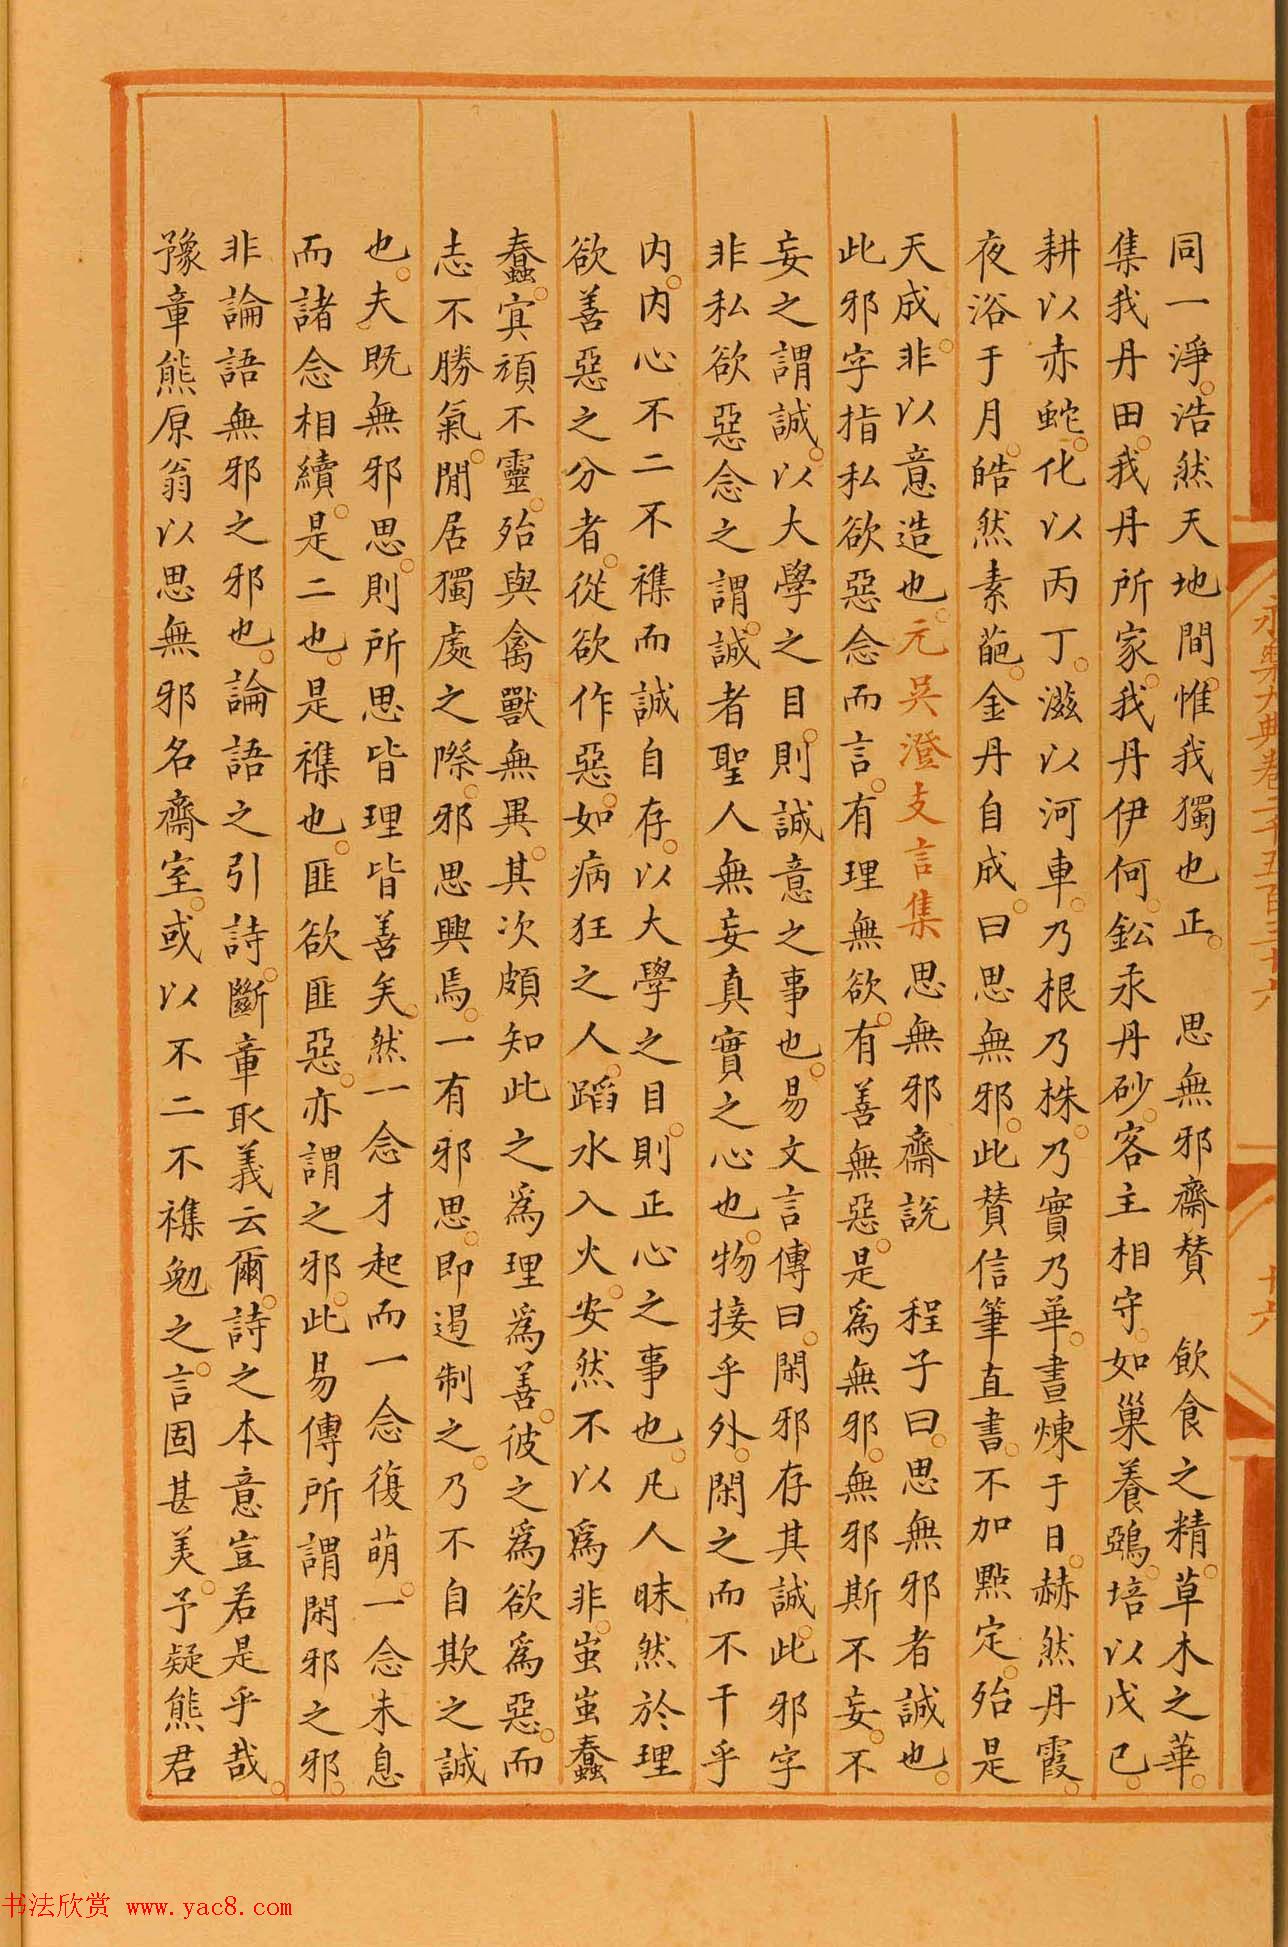 永樂大典卷二千五百三十六
十六
同一淨浩然天地間惟我獨也正 思無邪齋贊 飲食之精草木之華
集我丹田我丹所家我丹伊何鈆汞丹砂客主相守如巢養鵶培以戊己
耕以赤蛇化以丙丁滋以河車乃根乃株乃實乃華晝煉于日赫然丹霞
夜浴于月皓然素葩金丹自成曰思無邪此贊信筆直書不加點定殆是
天成非以意造也元吳澄支言集思無邪齋說 程子曰思無邪者誠也
此邪字指私欲惡念而言有理無欲有善無惡是爲無邪無邪斯不妄不
妄之謂誠以大學之目則誠意之事也易文言傳曰閑邪存其誠此邪字
非私欲惡念之謂誠者聖人無妄真實之心也物接乎外閑之而不干乎
内内心不二不襍而誠自存以大學之目則正心之事也凡人昧然於理
欲善惡之分者從欲作惡如病狂之人蹈水入火安然不以爲非蚩蚩蠢
蠢寘頑不靈殆與禽獸無異其次頗知此之爲理爲善彼之爲欲爲惡而
志不勝氣閒居獨處之際邪思興焉一有邪思即遏制之乃不自欺之誠
也夫既無邪思則所思皆理皆善矣然一念才起而一念復萌一念未息
而諸念相續是二也是襍也匪欲匪惡亦謂之邪此易傳所謂閑邪之邪
非論語無邪之邪也論語之引詩斷章取義云爾詩之本意豈若是乎哉
豫章熊原翁以思無邪名齋室或以不二不襍勉之言固甚美予疑熊君
书法欣赏 www.yac8.com